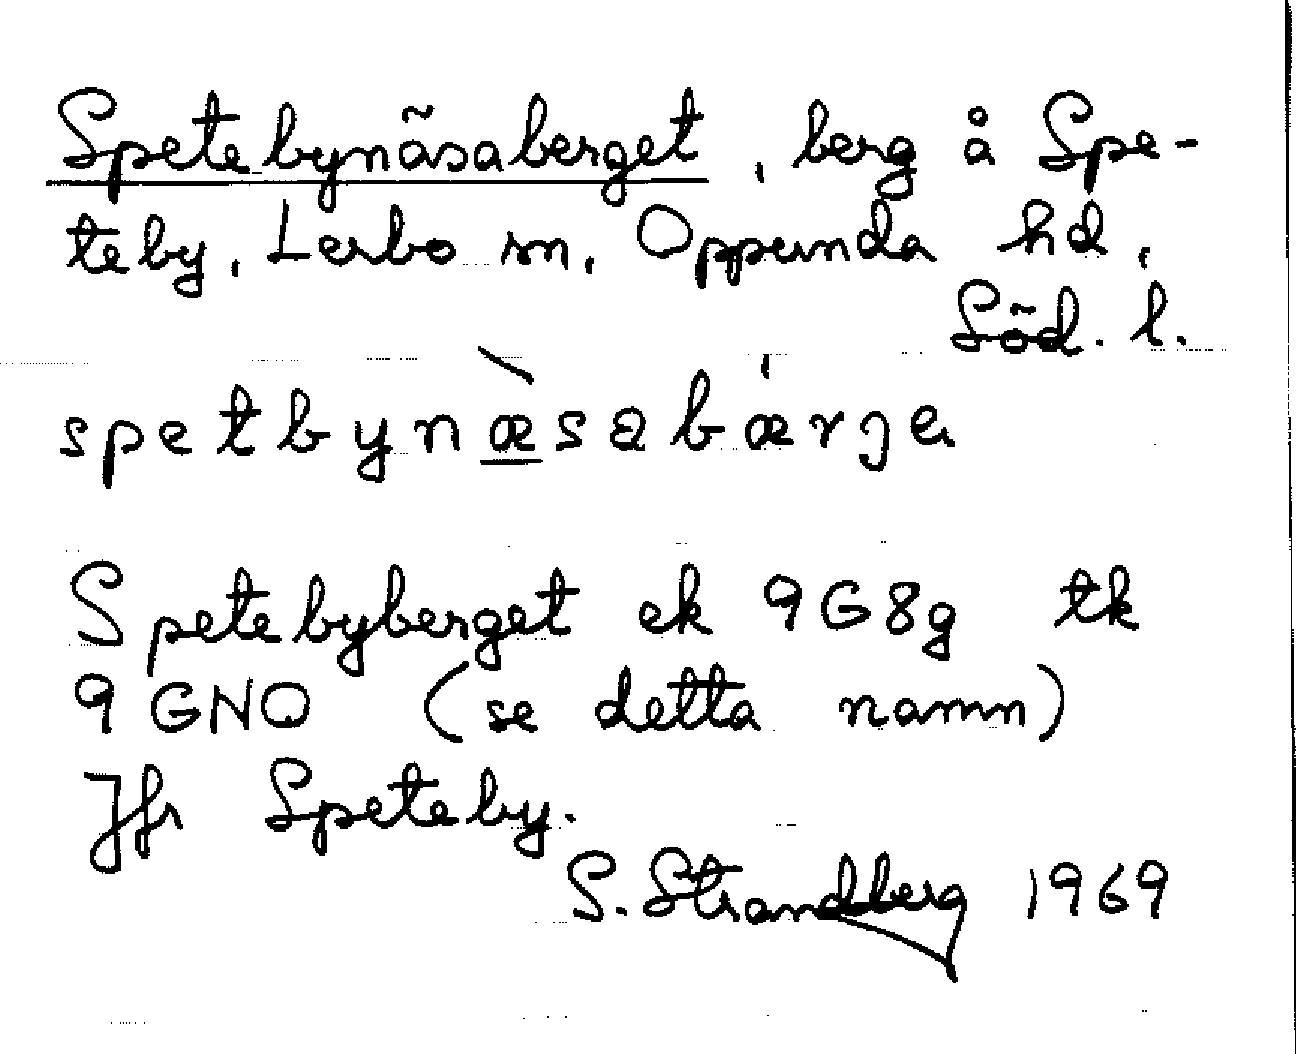 Spetebynäsaberget, berg å Spe-
teby, Lerbo sn, Oppunda hd,
Söd. l.
spetbynæ̀sabǽrjə
Spetebyberget ek 9G8g tk
9GNO (se detta namn)
Jfr Speteby.
S. Strandberg 1969